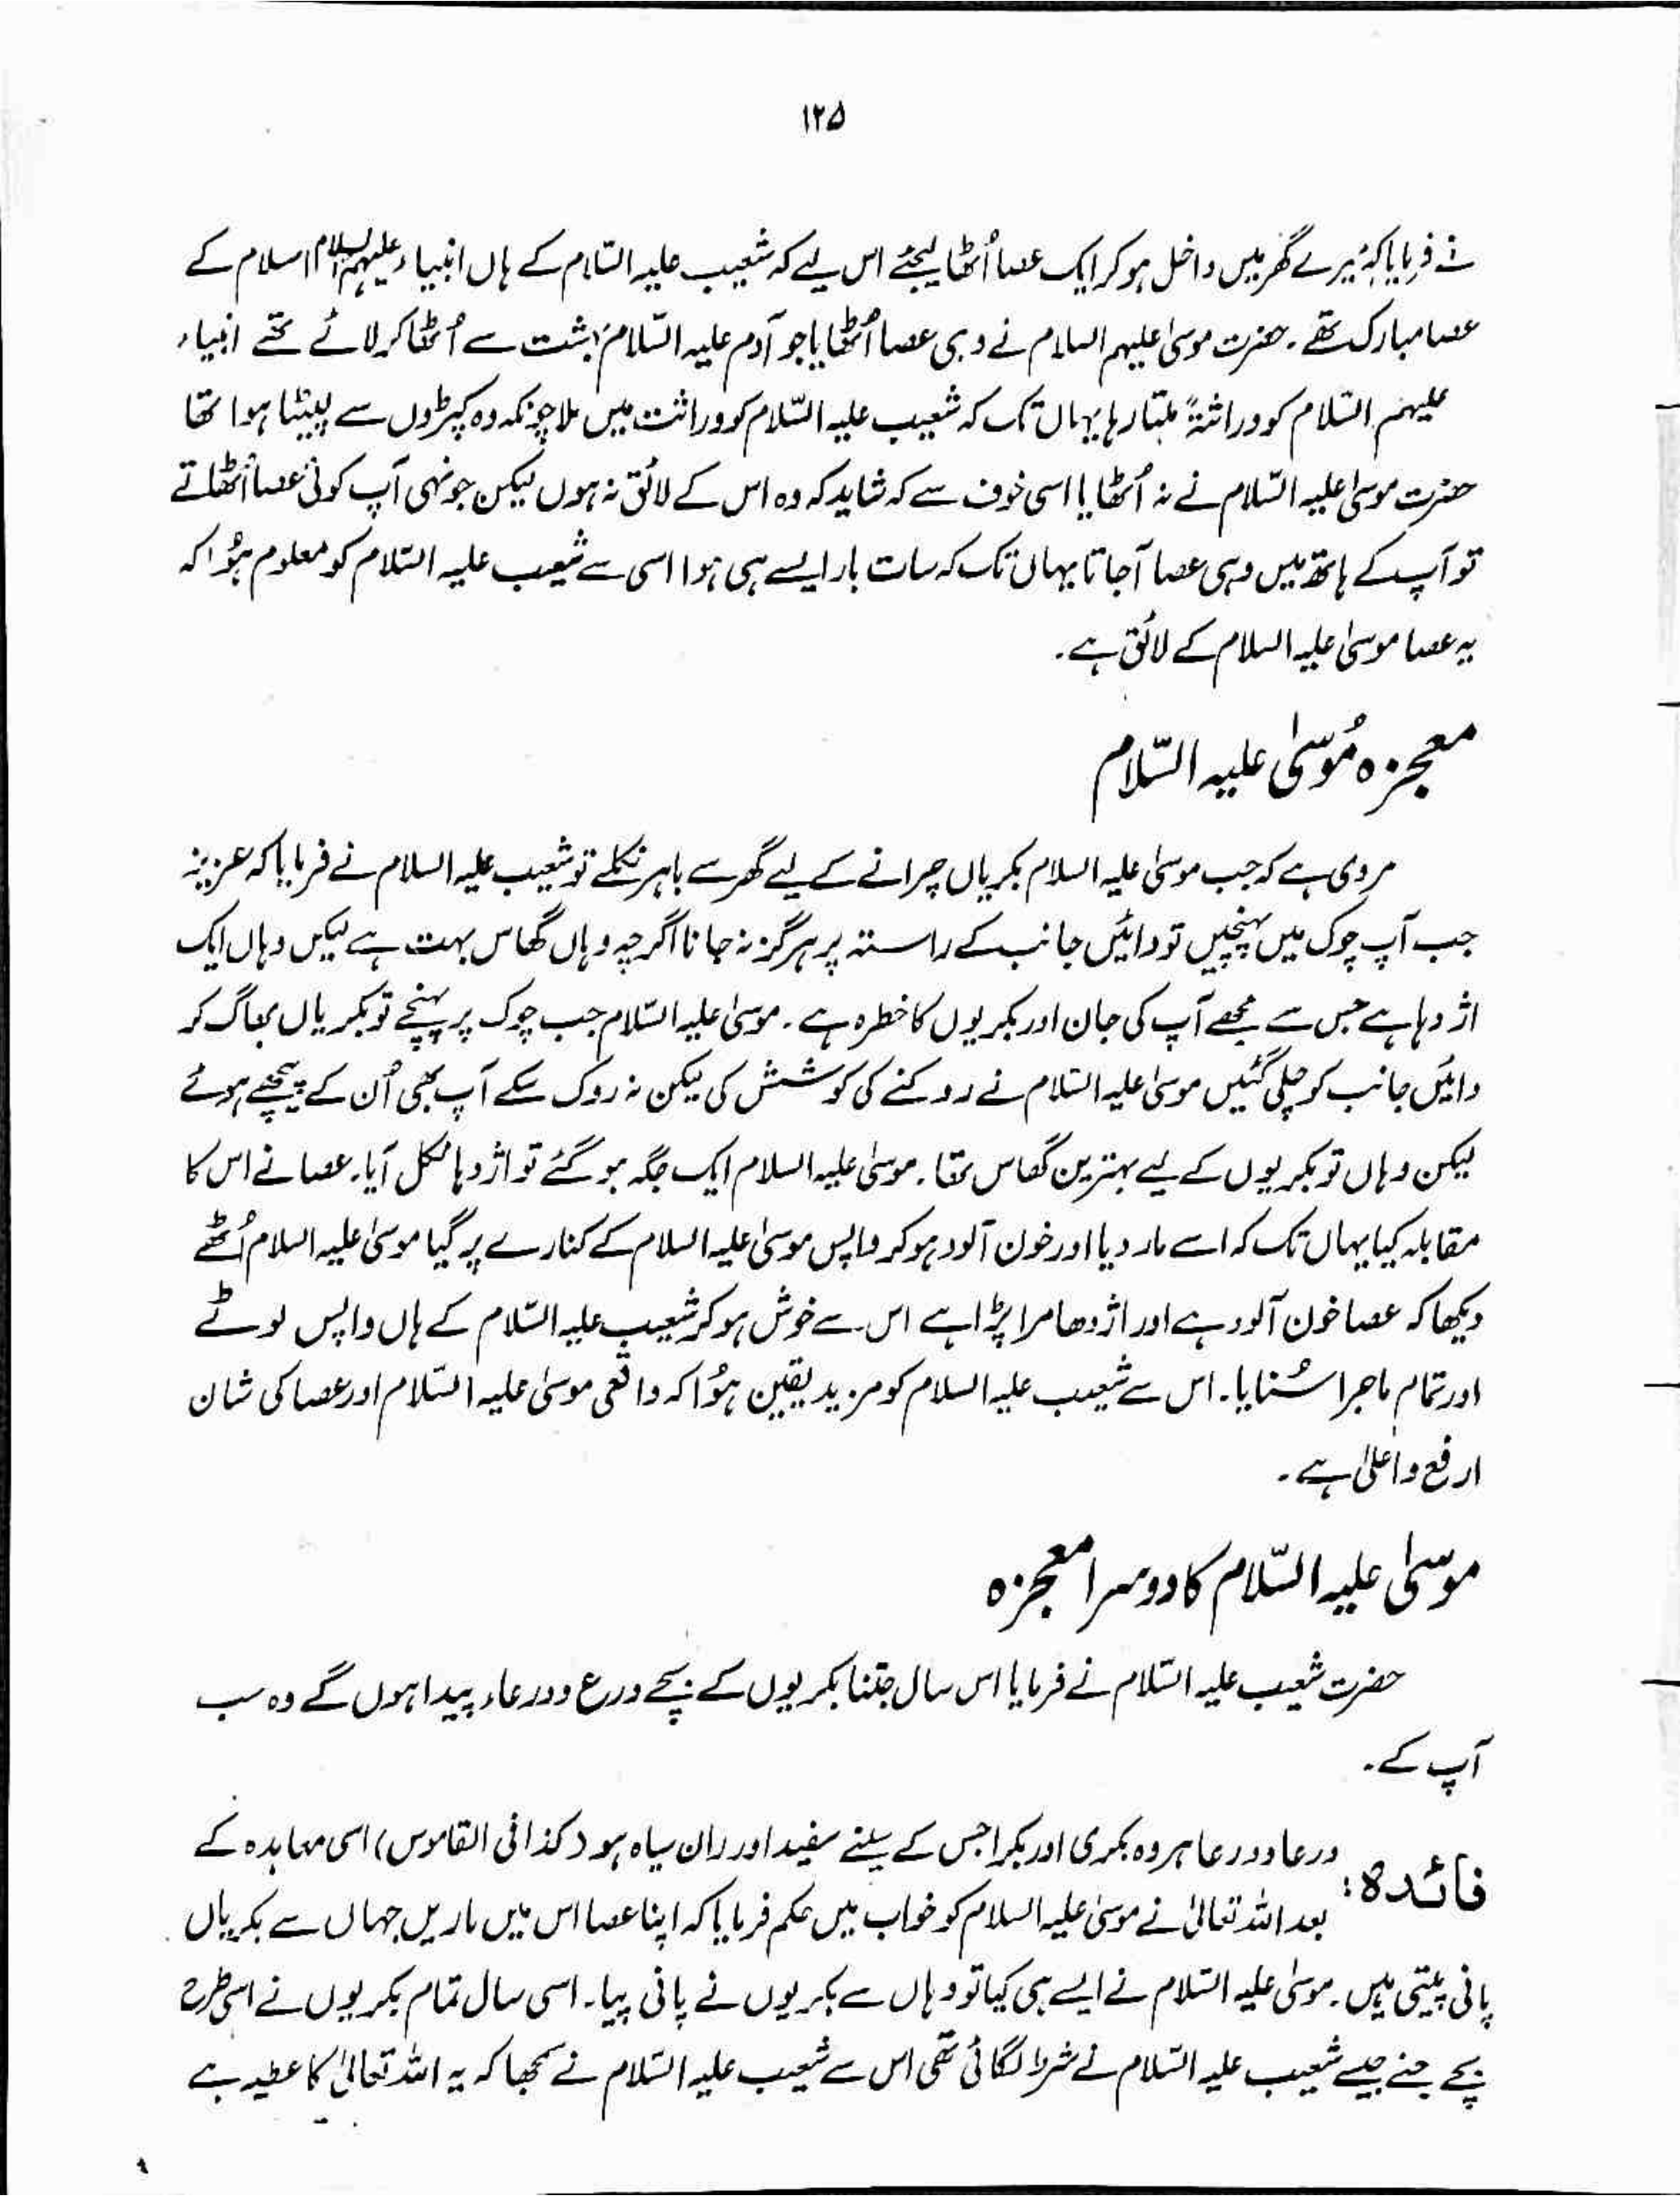 ۱۲۵
نے فرمایا کہ میرے گھر میں داخل ہو کر ایک عصا اُٹھا لیجئے اس لیے کہ شعیب علیہ السّلام کے ہاں انبیاء علیہم السلام اسلام کے
عصا مبارک تھے۔ حضرت موسیٰ علیہم السلام نے وہی عصا اُٹھایا جو آدم علیہ السّلام بہشت سے اُٹھا کر لائے تھے انبیاء
علیہم السّلام کو وراثتہً ملتا رہا یہاں تک کہ شعیب علیہ السّلام کو وراثت میں ملا چونکہ وہ کپڑوں سے لپیٹا ہوا تھا
حضرت موسیٰ علیہ السّلام نے نہ اُٹھایا اسی خوف سے کہ شاید کہ وہ اس کے لائق نہ ہوں لیکن جونہی آپ کوئی عصا اُٹھاتے
تو آپ کے ہاتھ میں وہی عصا آجاتا یہاں تک کہ سات بار ایسے ہی ہوا اسی سے شعیب علیہ السّلام کو معلوم ہؤا کہ
یہ عصا موسیٰ علیہ السلام کے لائق ہے۔
معجزہ مُوسیٰ علیہ السّلام
مروی ہے کہ جب موسیٰ علیہ السلام بکریاں چرانے کے لیے گھر سے باہر نکلے تو شعیب علیہ السلام نے فرمایا کہ عزیز
جب آپ چوک میں پہنچیں تو دائیں جانب کے راستہ پر ہرگز نہ جانا اگرچہ وہاں گھاس بہت ہے لیکن وہاں ایک
اژدہا ہے جس سے مجھے آپ کی جان اور بکریوں کا خطرہ ہے۔ موسیٰ علیہ السّلام جب چوک پر پہنچے تو بکریاں بھاگ کر
دائیں جانب کو چلی گئیں موسیٰ علیہ السّلام نے روکنے کی کوشش کی لیکن نہ روک سکے آپ بھی اُن کے پیچھے ہوئے
لیکن وہاں تو بکریوں کے لیے بہترین گھاس تھا۔ موسیٰ علیہ السلام ایک جگہ سو گئے تو اژدہا نکل آیا۔ عصا نے اس کا
مقابلہ کیا یہاں تک کہ اسے مار دیا اور خون آلود ہو کر واپس موسیٰ علیہ السلام کے کنارے پر گیا موسیٰ علیہ السلام اُٹھے
دیکھا کہ عصا خون آلود ہے اور اژدھا مرا پڑا ہے اس سے خوش ہو کر شعیب علیہ السّلام کے ہاں واپس لوٹے
اور تمام ماجرا سُنایا۔ اس سے شعیب علیہ السلام کو مزید یقین ہؤا کہ واقعی موسیٰ علیہ السّلام اور عصا کی شان
ارفع و اعلیٰ ہے۔
موسیٰ علیہ السّلام کا دوسرا معجزہ
حضرت شعیب علیہ السّلام نے فرمایا اس سال جتنا بکریوں کے بچے درع و درعاء پیدا ہوں گے وہ سب
آپ کے۔
فائدہ: درعا و درعا ہر وہ بکری اور بکرا جس کے سینے سفید اور ران سیاہ ہو (کذا فی القاموس) اسی معاہدہ کے
بعد اللہ تعالیٰ نے موسیٰ علیہ السلام کو خواب میں حکم فرمایا کہ اپنا عصا اس میں ماریں جہاں سے بکریاں
پانی پیتی ہیں۔ موسیٰ علیہ السّلام نے ایسے ہی کیا تو وہاں سے بکریوں نے پانی پیا۔ اسی سال تمام بکریوں نے اسی طرح
بچے جنے جیسے شعیب علیہ السّلام نے شرط لگائی تھی اس سے شعیب علیہ السّلام نے سمجھا کہ یہ اللہ تعالیٰ کا عطیہ ہے